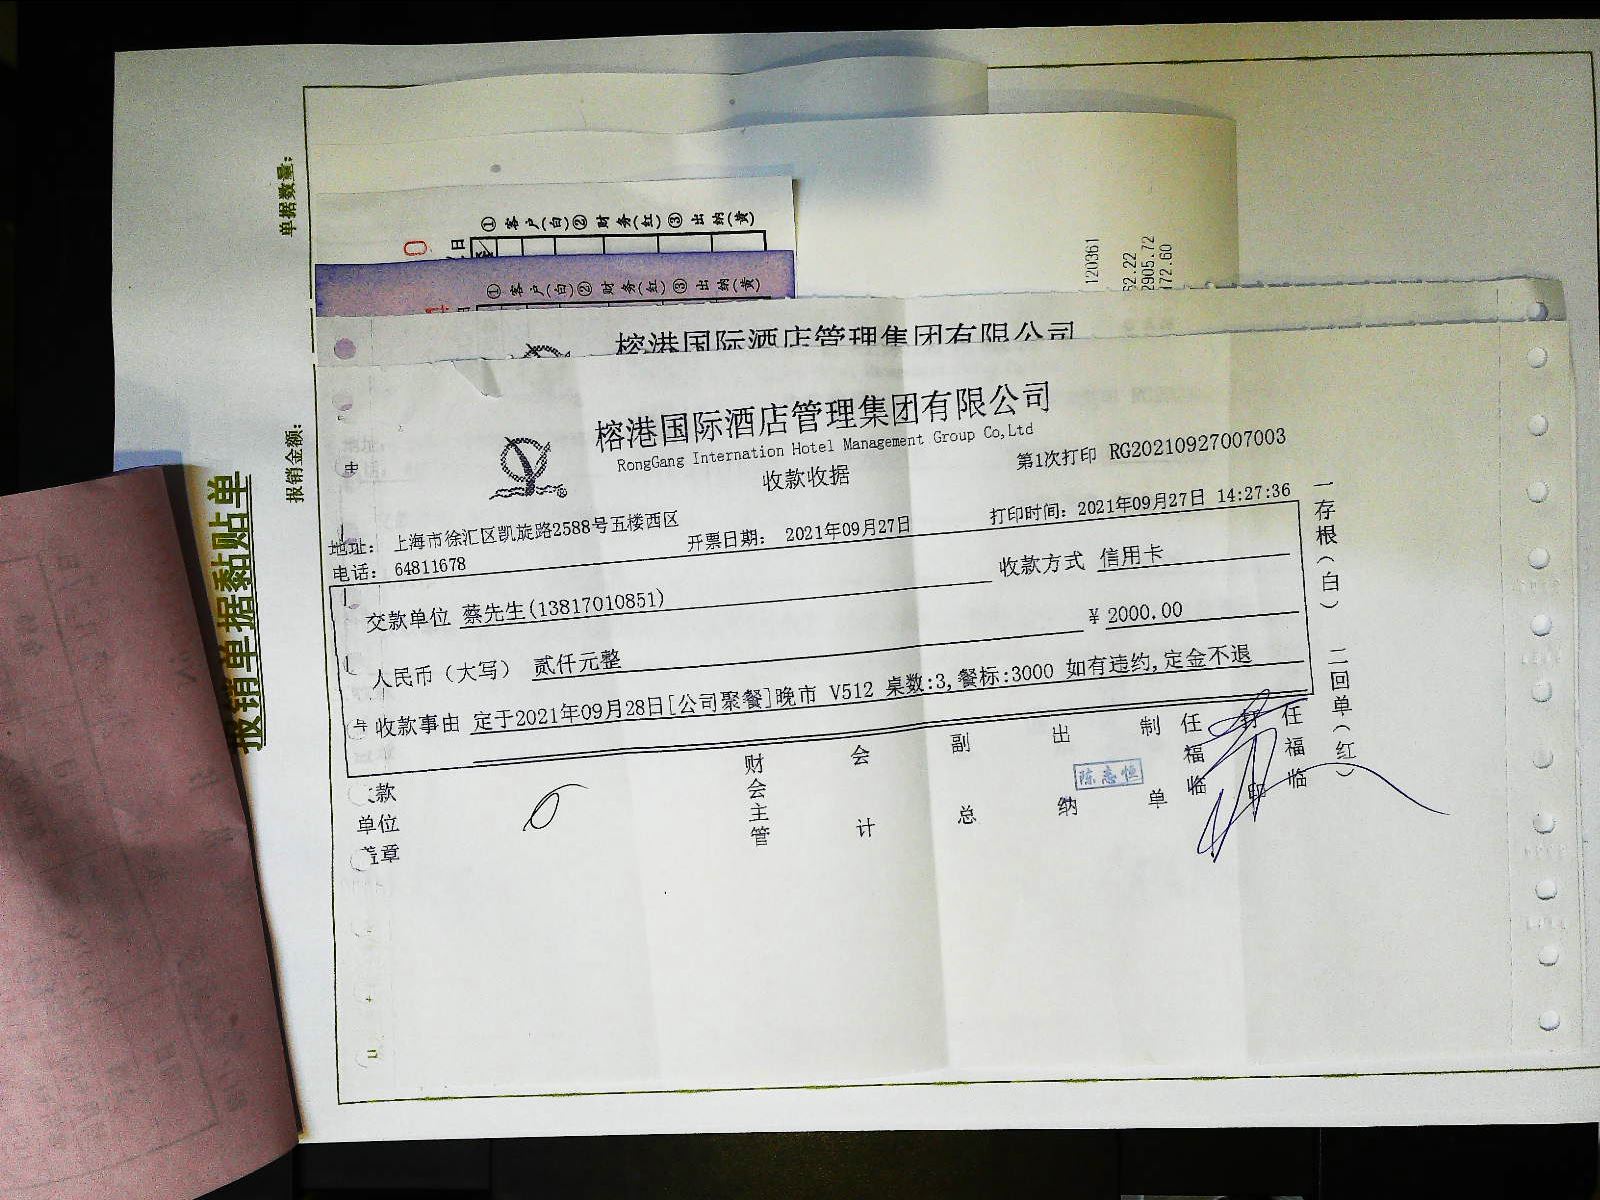 单据数量:
报销金额:
报销单据黏贴单
① 客户(白)② 财务(红)③ 出纳(黄)
日
0
① 客户(白)② 财务(红)③ 出纳(黄)
120361
62.22
2905.72
172.60
榕港国际酒店管理集团有限公司
榕港国际酒店管理集团有限公司
RongGang Internation Hotel Management Group Co,Ltd
收款收据
第1次打印 RG20210927007003
地址: 上海市徐汇区凯旋路2588号五楼西区
开票日期: 2021年09月27日
打印时间: 2021年09月27日 14:27:36
电话: 64811678
交款单位 蔡先生(13817010851)
收款方式 信用卡
人民币(大写) 贰仟元整
¥ 2000.00
收款事由 定于2021年09月28日[公司聚餐]晚市 V512 桌数:3,餐标:3000 如有违约,定金不退
款单位盖章
财会主管
会计
副总
出纳
陈志恒
制单
任福临
任福临
一存根(白) 二回单(红)